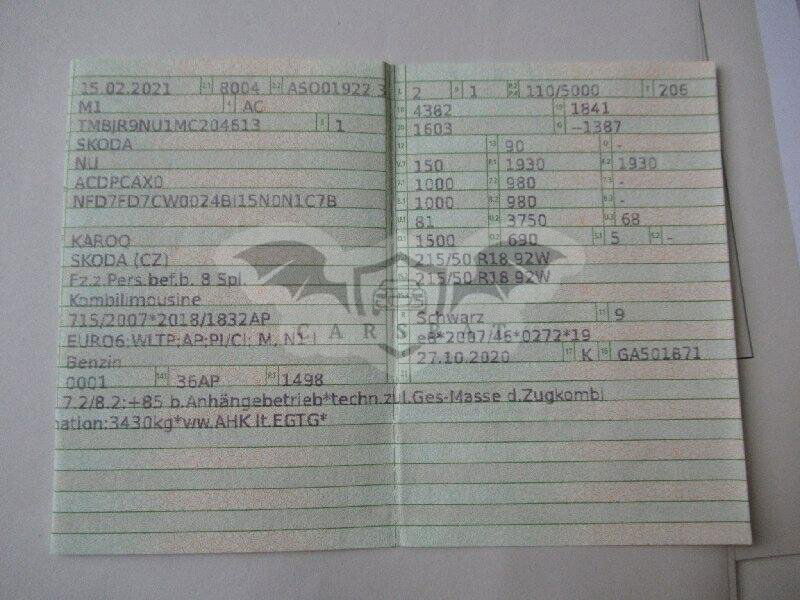 15.02.2021 8004 ASO01922 3
M1 AC
TMBJR9NU1MC204613 1
SKODA
NU
ACDPCAX0
NFD7FD7CW0024BI15N0N1C7B
KAROQ
SKODA (CZ)
Fz.z.Pers.bef.b. 8 Spl.
Kombilimousine
715/2007*2018/1832AP
EURO6;WLTP;AP;PI/CI; M, N1 I
Benzin
0001 36AP 1498
7.2/8.2:+85 b.Anhängebetrieb*techn.zul.Ges-Masse d.Zugkombi
nation:3430kg*ww.AHK lt.EGTG*
2 1 110/5000 206
4382 1841
1603 –1387
90 -
150 1930 1930
1000 980 -
1000 980 -
81 3750 68
1500 690 5 -
215/50 R18 92W
215/50 R18 92W
Schwarz 9
e8*2007/46*0272*19
27.10.2020 K GA501871
CARS